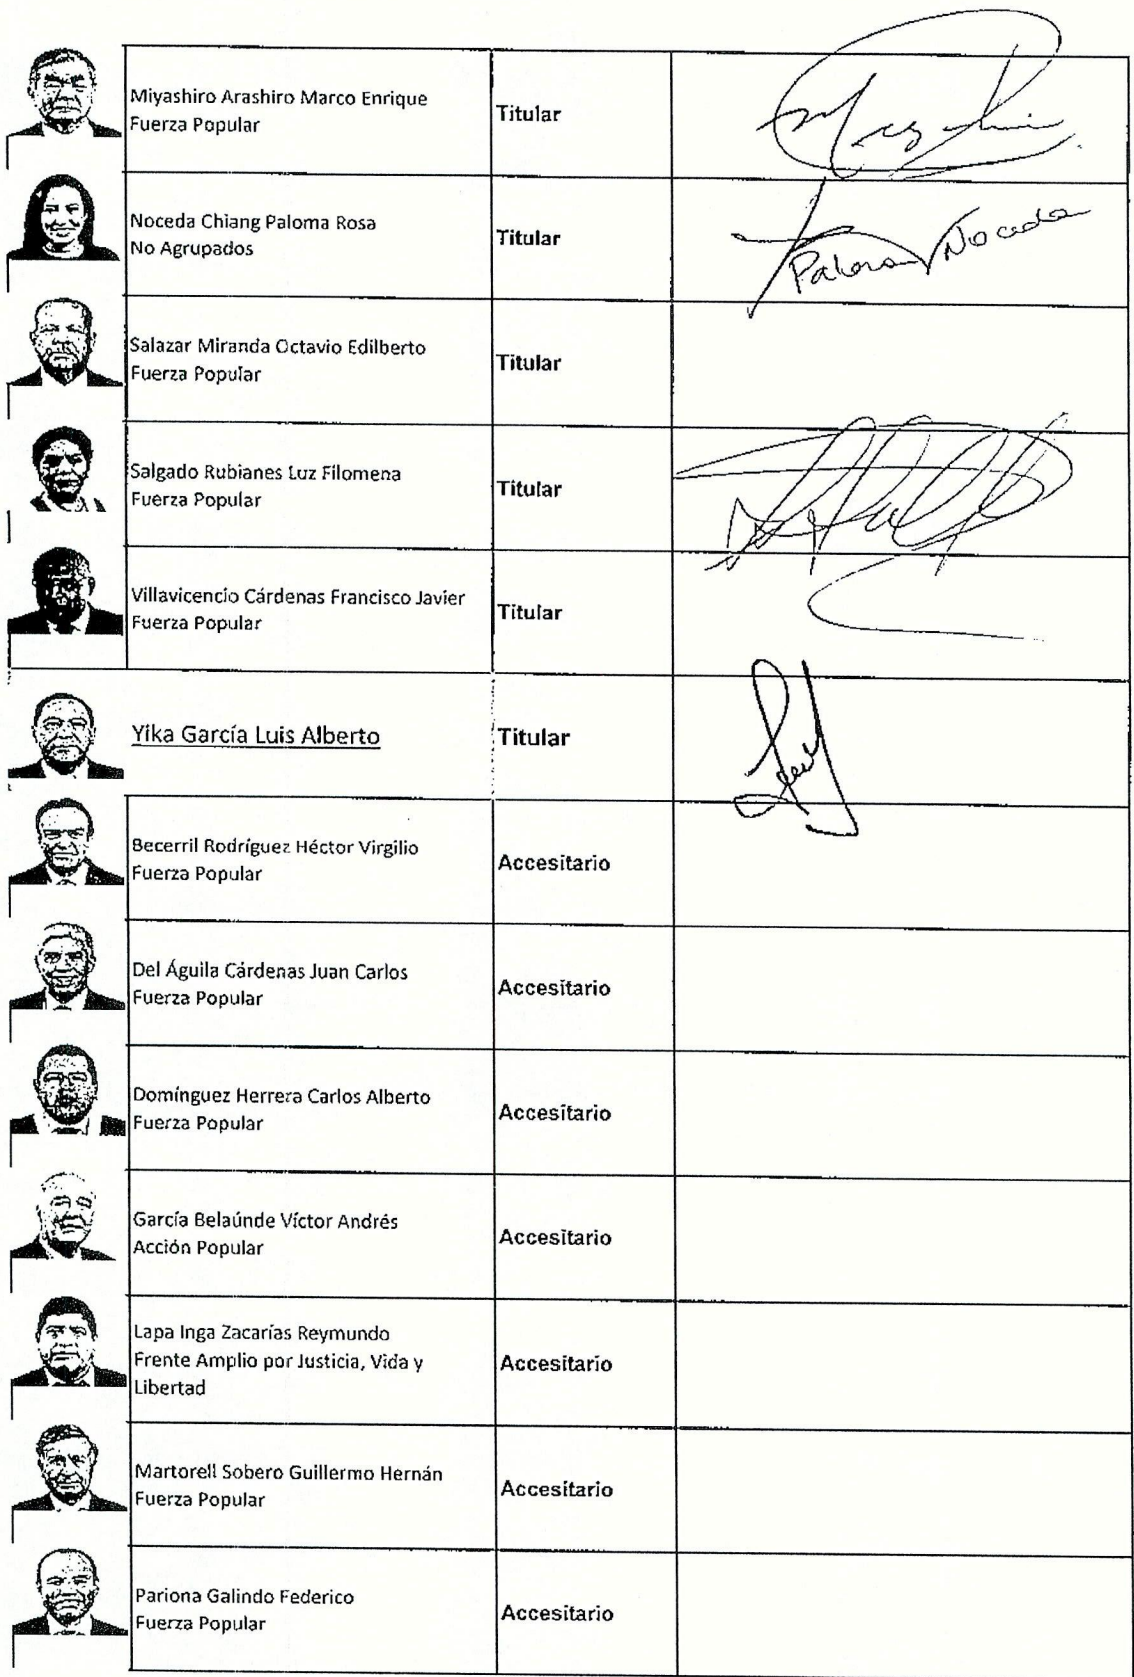 Miyashiro Arashiro Marco Enrique
Fuerza Popular
Titular
Noceda Chiang Paloma Rosa
No Agrupados
Titular
Paloma Noceda
Salazar Miranda Octavio Edilberto
Fuerza Popular
Titular
Salgado Rubianes Luz Filomena
Fuerza Popular
Titular
Villavicencio Cárdenas Francisco Javier
Fuerza Popular
Titular
Yika García Luis Alberto
Titular
Becerril Rodríguez Héctor Virgilio
Fuerza Popular
Accesitario
Del Águila Cárdenas Juan Carlos
Fuerza Popular
Accesitario
Domínguez Herrera Carlos Alberto
Fuerza Popular
Accesitario
García Belaúnde Víctor Andrés
Acción Popular
Accesitario
Lapa Inga Zacarías Reymundo
Frente Amplio por Justicia, Vida y
Libertad
Accesitario
Martorell Sobero Guillermo Hernán
Fuerza Popular
Accesitario
Pariona Galindo Federico
Fuerza Popular
Accesitario